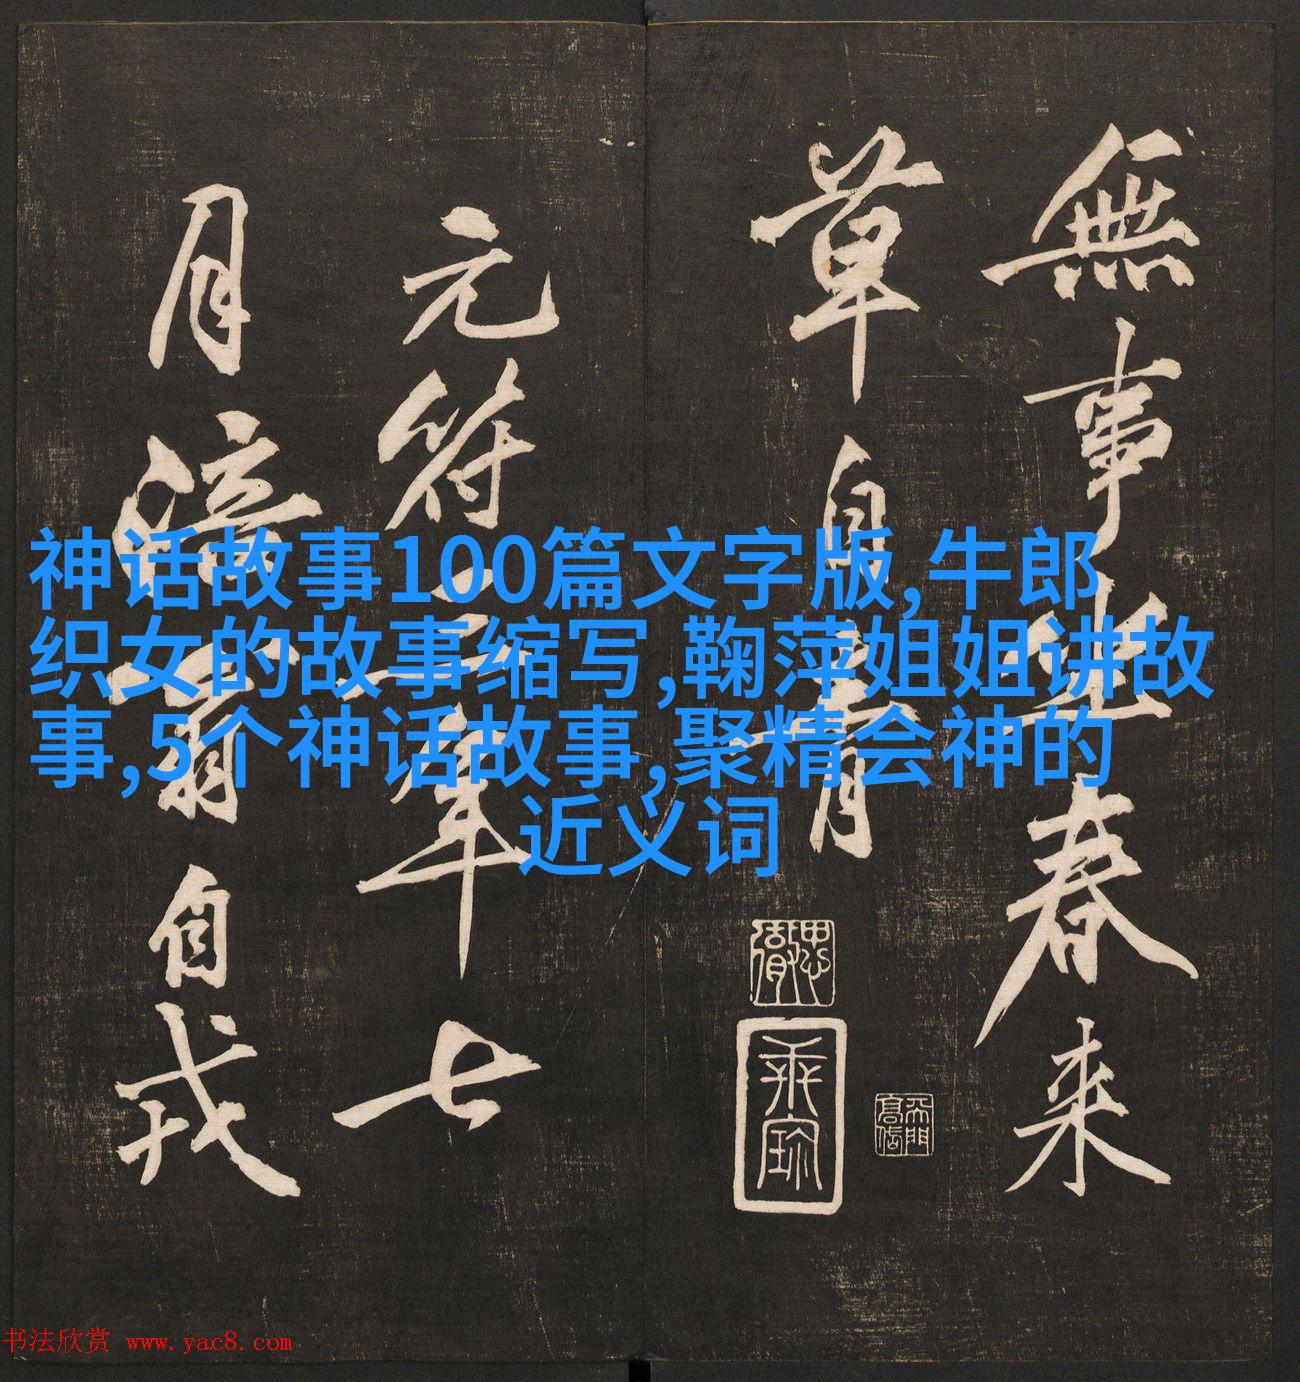 無事坐春来
草自青
元符三年七
月涪翁自戎
神话故事100篇文字版,牛郎
织女的故事缩写,鞠萍姐姐讲故
事,5个神话故事,聚精会神的
近义词
书法欣赏 www.yac8.com